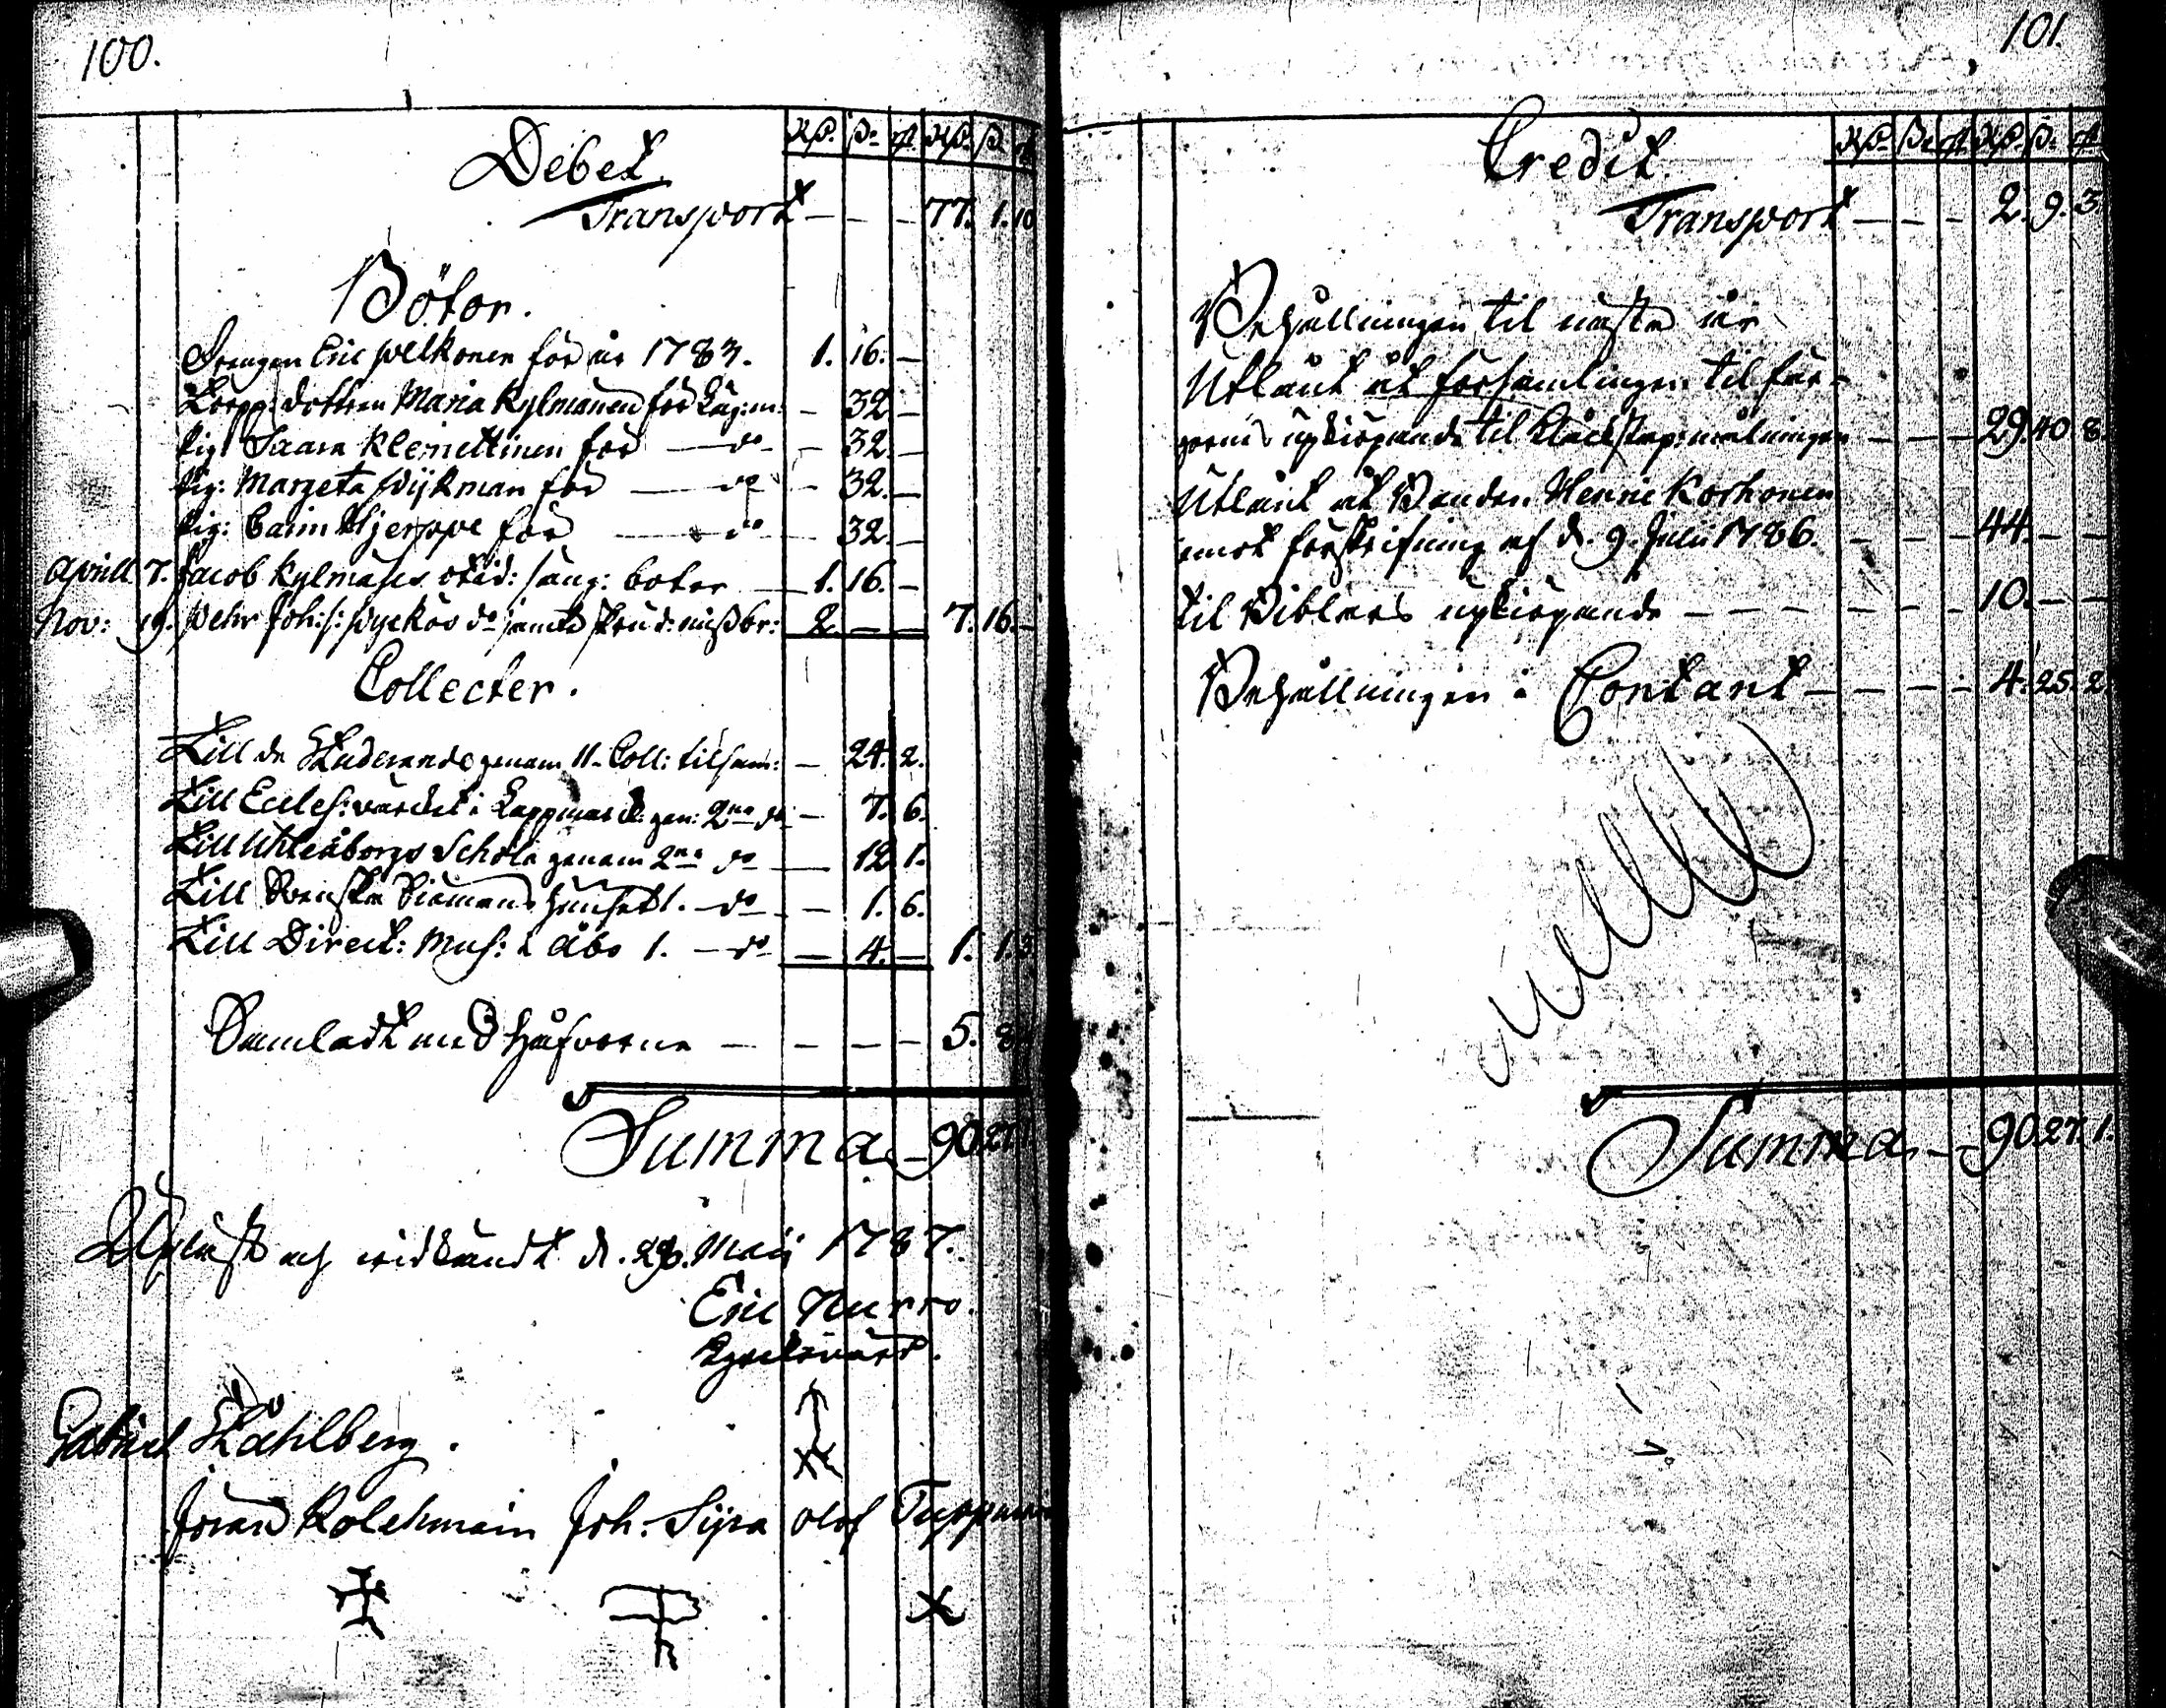 100.
Debet. Rd. s. rst. Rd. s. rst.
Transport — — — 77. 1. 10
Böter.
Drengen Eric Pelkonen för år 1783. 1. 16. —
dottren Maria Kylmänen för Läg:m: — 32. —
Pig: Saara Klemettinen för — do — 32. —
Pig: Margeta Wijkman för — do — 32. —
Pig: Carin Hjerppe för — do — 32. —
Aprill 7. Jacob Kylmäses otid: säng: böter 1. 16. —
Nov: 19. Pehr Joh:s: do jemte 2. — — 7. 16. —
Collecter.
Till de Studerande genom 11. Coll: tilsam: — 24. 2.
Till Eccles: värcket i Lappmarck: gen: 2ne do — 7. 6.
Till Uhleåborgs Schola genom 2ne do — 12. 1.
Till Svenska 1. do — 1. 6.
Till Direct: Mus: i Åbo 1. — do — 4. — 1. 1. 3
Samladt med Håfvarne — — — — 5. 8.
Summa — 90. 27. 1
Upläst och vidkändt d. 28. Maij 1787.
Eric Kurro.
Kyrckovärd.
Gabriel Ståhlberg.
Jöran Kolehmain Joh. Sijra Olof Tuppurain
101.
Credit. Rd. s. rst. Rd. s. rst.
Transport — — — 2. 9. 3.
Behållningen til nästa år
Utlånt åt församlingen til fär-
gornes upköpande til Klåckstap: målningen — — — 29. 40. 8.
Utlånt åt Bonden Henric Korhonen
emot förskrifning af d. 9. Julii 1786. — — — 44. — —
til Biblars upköpande — — — — 10. — —
Behållningen i Contant — — — — 4. 25. 2
Summa — 90. 27. 1.